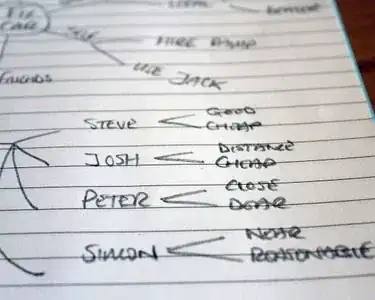 CARE
HIRE
USE JACK
FRIENDS
STEVE
GOOD
CHEAP
JOSH
DISTANCE
CHEAP
PETER
CLOSE
DEAR
SIMON
NEAR
REASONABLE